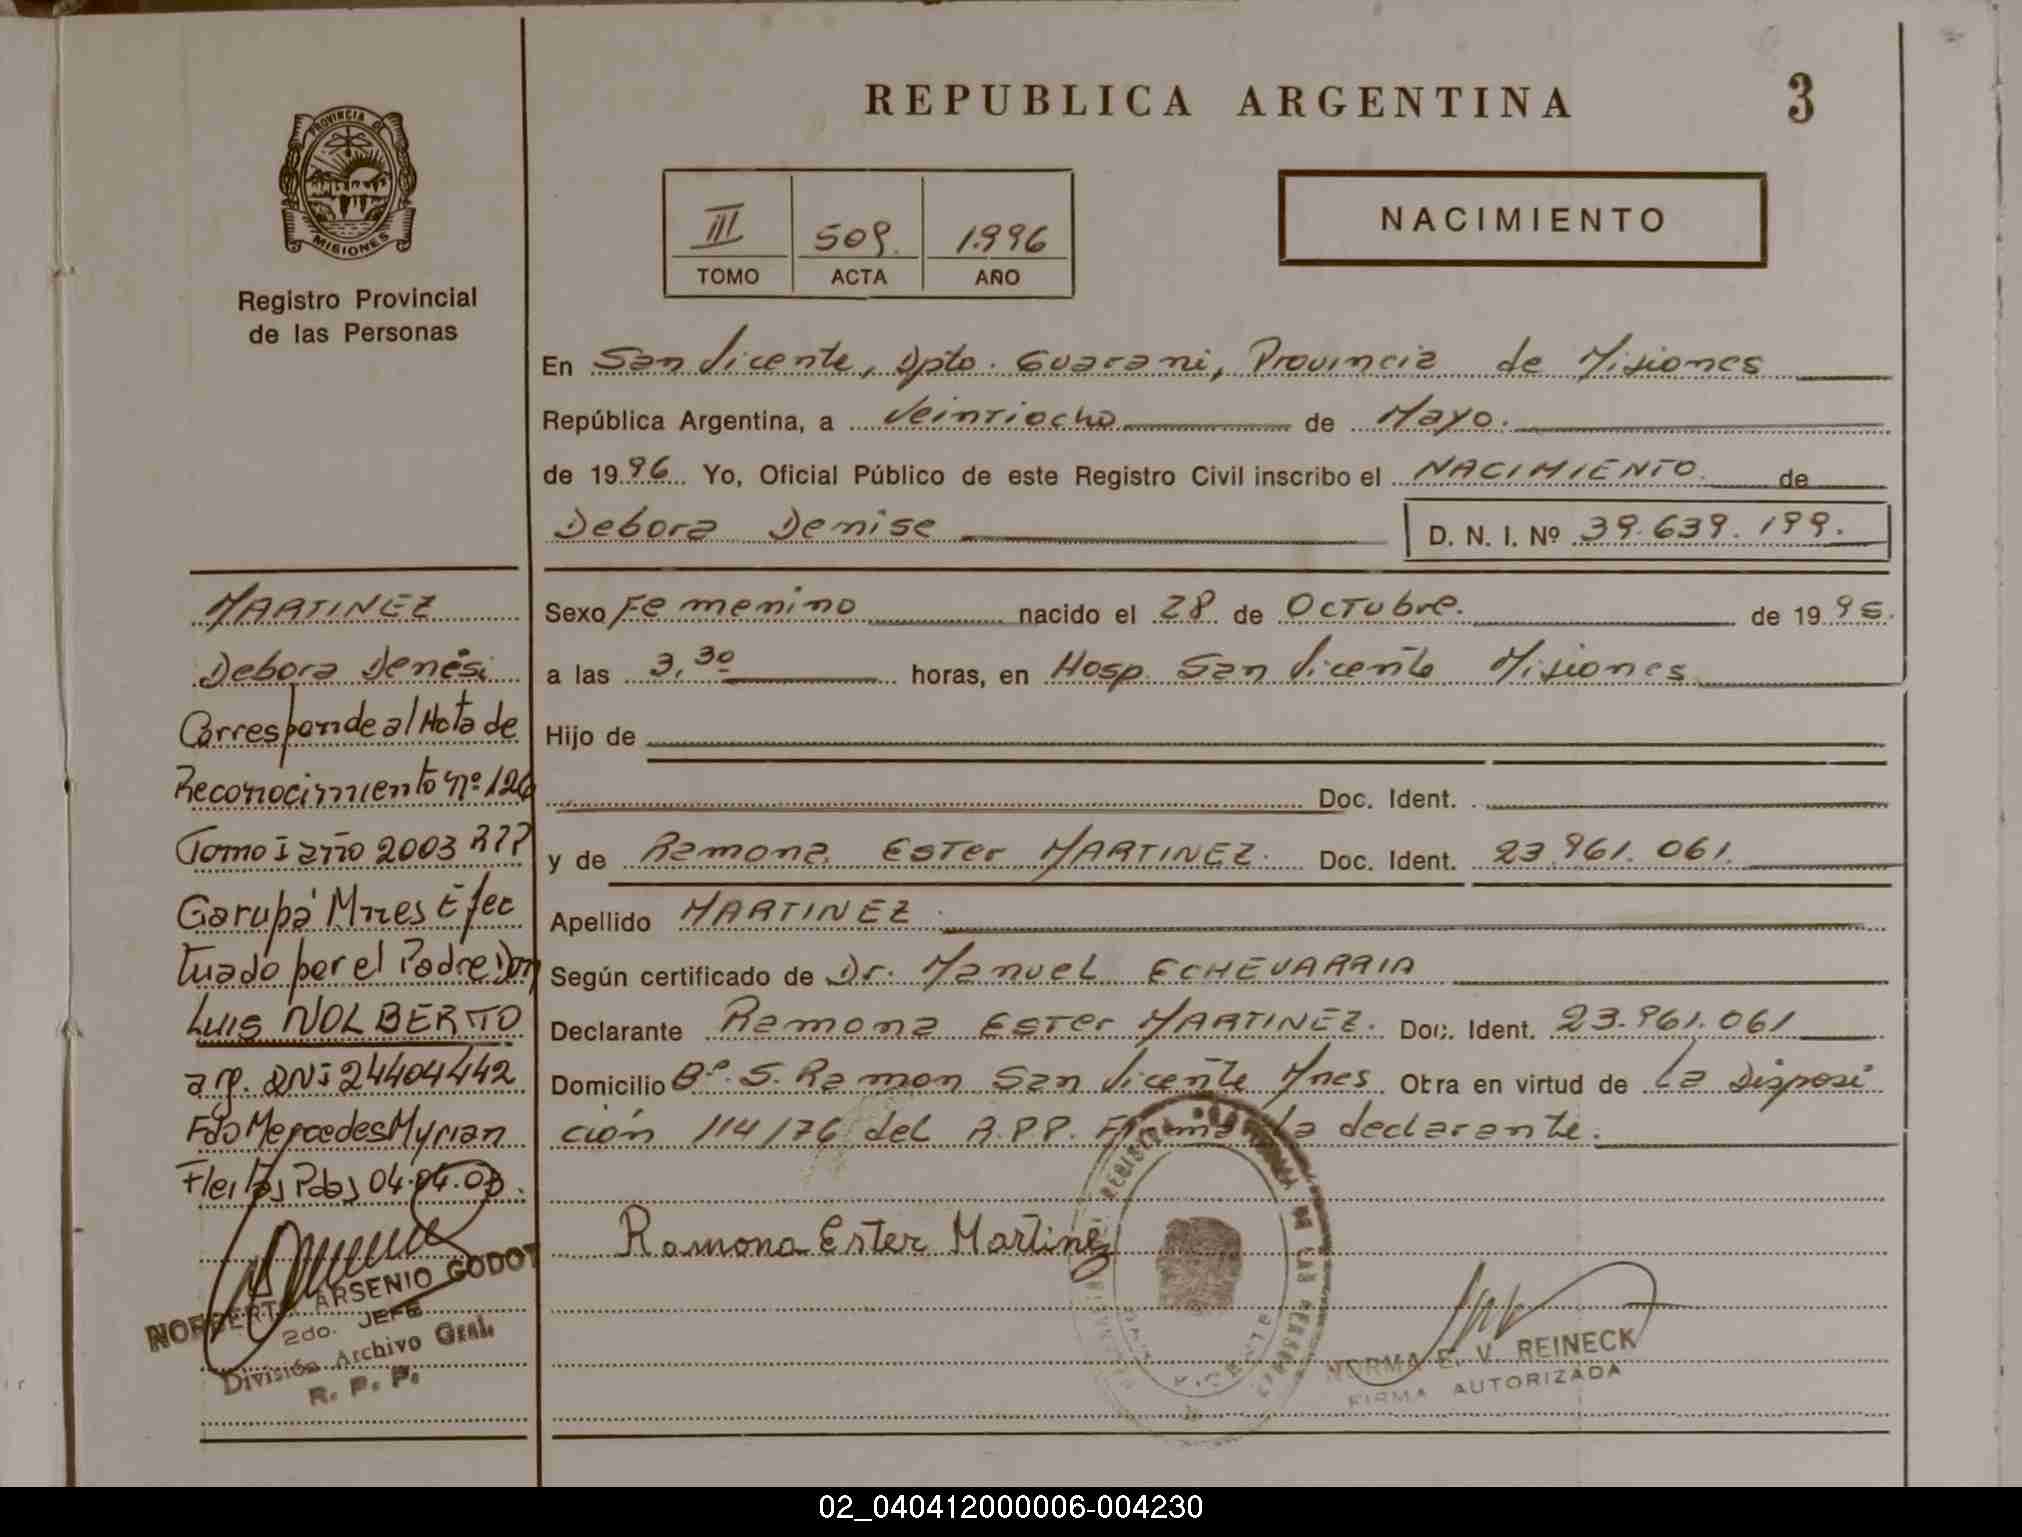 REPUBLICA ARGENTINA
3
PROVINCIA DE
MISIONES
Registro Provincial
de las Personas
III 509. 1.996
TOMO ACTA AÑO
NACIMIENTO
En San Vicente, Dpto. Guarani, Provincia de Misiones
República Argentina, a Veintiocho de Mayo.
de 1996 Yo, Oficial Público de este Registro Civil inscribo el NACIMIENTO de
Debora Denise D. N. I. Nº 39.639.199.
Sexo Femenino nacido el 28 de Octubre. de 1995.
a las 3,30 horas, en Hosp. San Vicente Misiones
Hijo de
Doc. Ident.
y de Ramona Ester MARTINEZ. Doc. Ident. 23.961.061.
Apellido MARTINEZ.
Según certificado de Dr. Manuel ECHEVARRIA
Declarante Ramona Ester MARTINEZ. Doc. Ident. 23.961.061
Domicilio Bº. S. Ramon San Vicente Mnes Otra en virtud de La Disposi
ción 114/76 del R.P.P. Firma La declarante.
Ramona Ester Martinez
NORMA E. V. REINECK
FIRMA AUTORIZADA
MARTINEZ
Debora Denési
Corresponde al Nota de
Reconocimiento nº 126
Tomo I año 2003 RPP
Garupá Mnes Efec
tuado por el Padre Don
Luis NOLBERTO
arg. DNI 24404442
Fdo Mercedes Myrian
Fleitas Pdas 04.04.03.
NORBERTO ARSENIO GODOY
2do. JEFE
División Archivo Gral.
R. P. P.
02_040412000006-004230